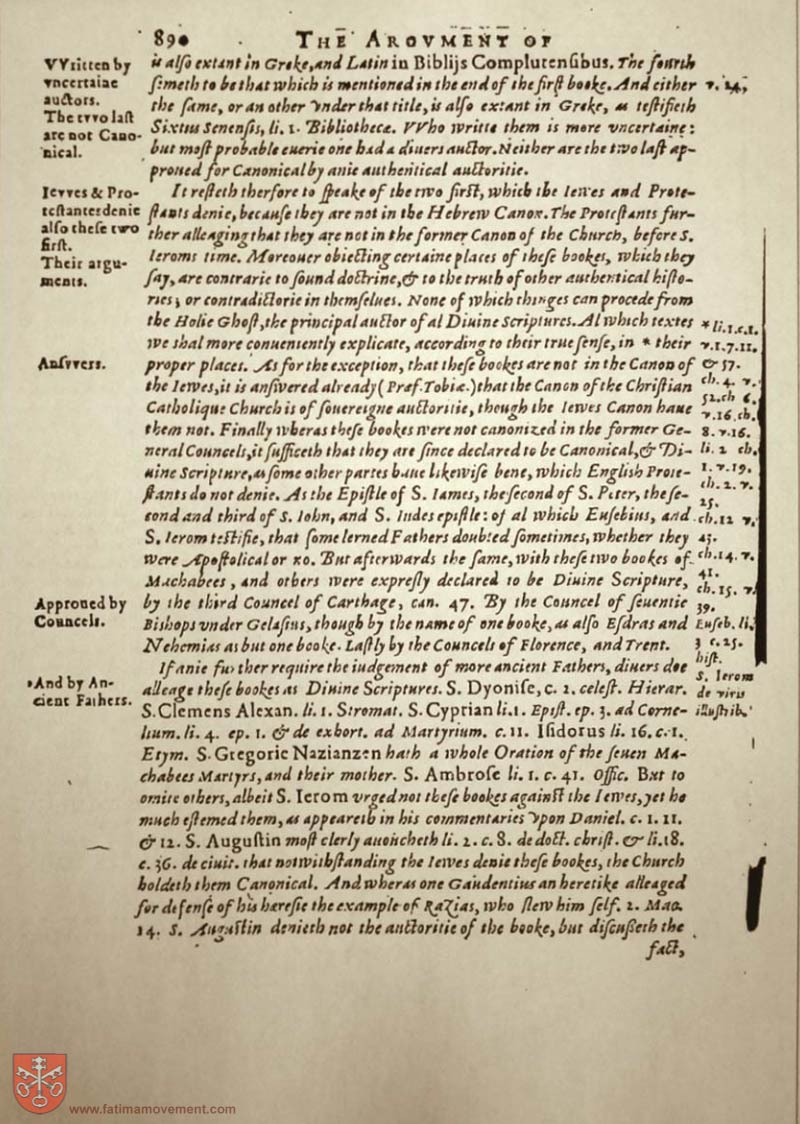 890
THE ARGVMENT OF
VVritten by
vncertaine
auctors.
The tvvo last
are not Cano-
nical.
is also extant in Greke, and Latin in Biblijs Complutensibus. The fourth
semeth to be that which is mentioned in the end of the first booke. And either
the same, or an other vnder that title, is also extant in Greke, as testifieth
Sixtus Senensis, li. 1. Bibliothecæ. VVho writte them is more vncertaine:
but most probable euerie one had a diuers auctor. Neither are the two last ap-
proued for Canonical by anie authentical auctoritie.
v. 24,
Iewes & Pro-
testantes denie
also these two
first.
Their argu-
ments.
It resteth therfore to speake of the two first, which the Iewes and Prote-
stants denie, because they are not in the Hebrew Canon. The Protestants fur-
ther alleaging that they are not in the former Canon of the Church, before S.
Ieroms time. Moreouer obiecting certaine places of these bookes, which they
say, are contrarie to sound doctrine, & to the truth of other authentical histo-
ries; or contradictorie in themselues. None of which thinges can procede from
the Holie Ghost, the principal auctor of al Diuine Scriptures. Al which textes
we shal more conueniently explicate, according to their true sense, in * their
Answers.
proper places. As for the exception, that these bookes are not in the Canon of
the Iewes, it is answered already (Præf. Tobiæ.) that the Canon of the Christian
Catholique Church is of souereigne auctoritie, though the Iewes Canon haue
them not. Finally wheras these bookes were not canonized in the former Ge-
neral Councels, it sufficeth that they are since declared to be Canonical, & Di-
uine Scripture, as some other partes haue likewise bene, which English Prote-
stants do not denie. As the Epistle of S. Iames, the second of S. Peter, the se-
cond and third of S. Iohn, and S. Iudes epistle: of al which Eusebius, and
S. Ierom testifie, that some lerned Fathers doubted sometimes, whether they
were Apostolical or no. But afterwards the same, with these two bookes of
Machabees, and others were expresly declared to be Diuine Scripture,
Approued by
Councels.
by the third Councel of Carthage, can. 47. By the Councel of seuentie
Bishops vnder Gelasius, though by the name of one booke, as also Esdras and
Nehemias as but one booke. Lastly by the Councels of Florence, and Trent.
* li. 1. c. 1.
v. 1. 7. 11.
& 57.
ch. 4. v.
52. ch 6.
v. 16. ch.
8. v. 16.
li. 2 ch.
1. v. 19.
ch. 2. v.
25.
ch. 12 v.
43.
ch. 14. v.
41.
ch. 15. v.
39.
Euseb. li.
3 c. 25.
hist.
S. Ierom
de viris
illustrib.
And by An-
cient Fathers.
If anie further require the iudgement of more ancient Fathers, diuers doe
alleage these bookes as Diuine Scriptures. S. Dyonise, c. 2. celest. Hierar.
S. Clemens Alexan. li. 1. Stromat. S. Cyprian li. 1. Epist. ep. 3. ad Corne-
lium. li. 4. ep. 1. & de exhort. ad Martyrium. c. 11. Isidorus li. 16. c. 1.
Etym. S. Gregorie Nazianzen hath a whole Oration of the seuen Ma-
chabees Martyrs, and their mother. S. Ambrose li. 1. c. 41. Offic. But to
omite others, albeit S. Ierom vrged not these bookes against the Iewes, yet he
much estemed them, as appeareth in his commentaries vpon Daniel. c. 1. 11.
& 12. S. Augustin most clerly auoucheth li. 2. c. 8. de doct. christ. & li. 18.
c. 36. de ciuit. that notwithstanding the Iewes denie these bookes, the Church
holdeth them Canonical. And wheras one Gaudentius an heretike alleaged
for defense of his hæresie the example of Razias, who slew him self. 2. Mac.
14. S. Augustin denieth not the auctoritie of the booke, but discusseth the
fact,
www.fatimamovement.com